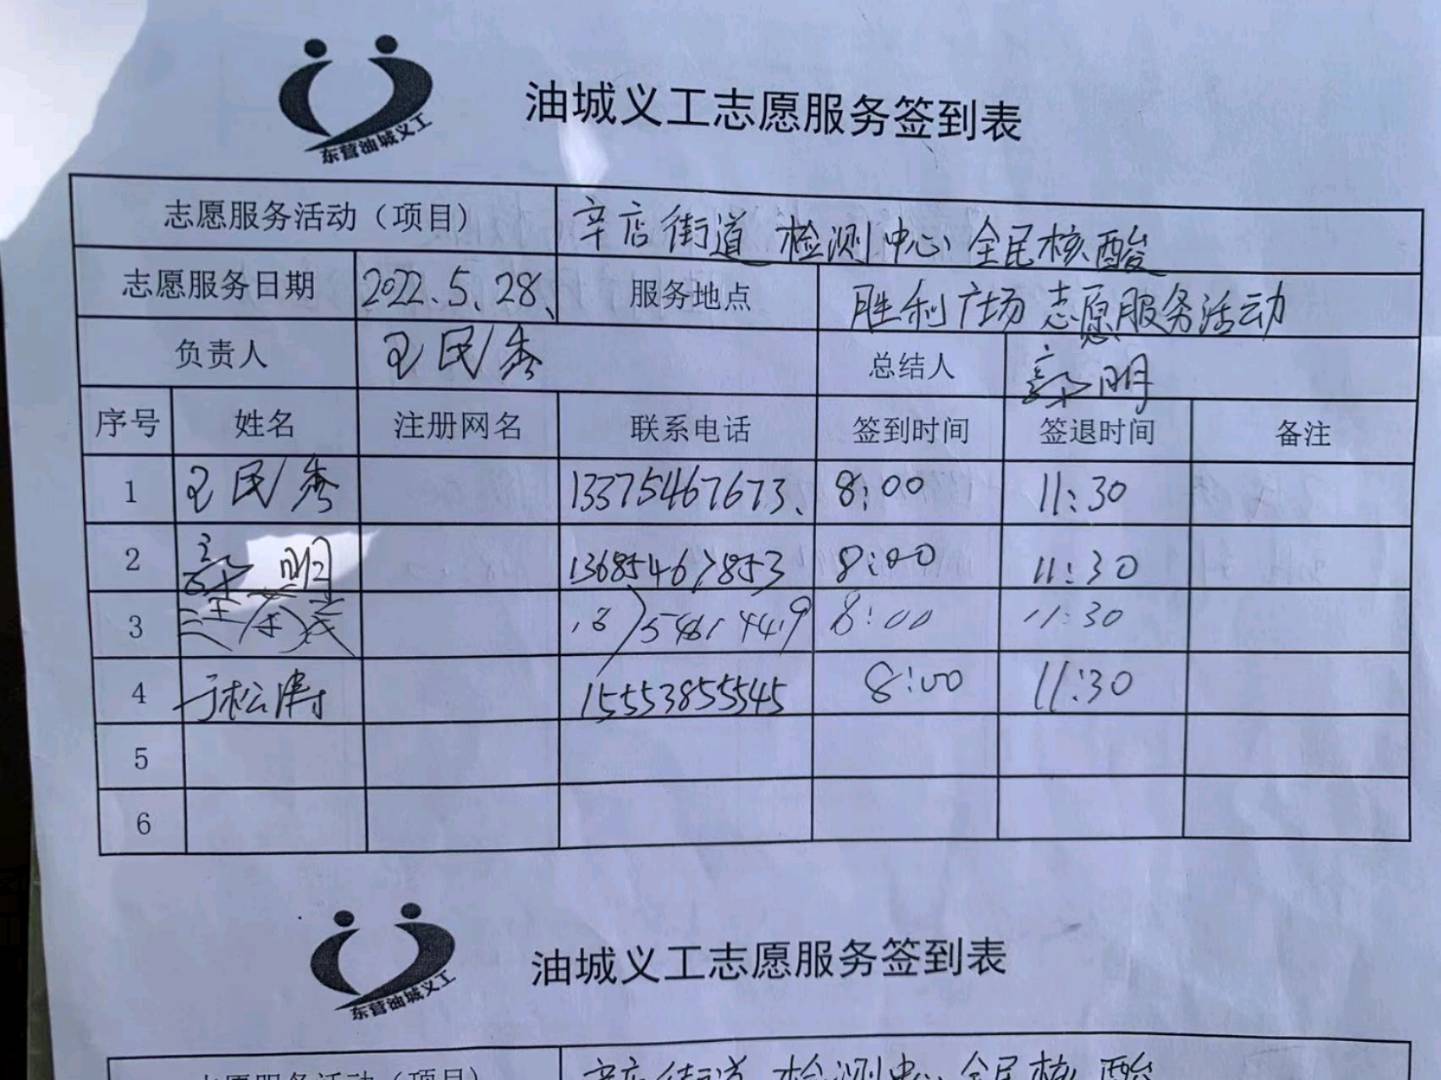 东营油城义工
油城义工志愿服务签到表
志愿服务活动（项目） 辛店街道 检测中心 全民核酸
志愿服务日期 2022.5.28、 服务地点 胜利广场 志愿服务活动
负责人 王民秀 总结人 郭明
序号 姓名 注册网名 联系电话 签到时间 签退时间 备注
1 王民秀 13375467673、 8:00 11:30
2 郭明 13685467853 8:00 11:30
3 8:00 11:30
4 于松涛 15553855545 8:00 11:30
5
6
东营油城义工
油城义工志愿服务签到表
志愿服务活动（项目） 辛店街道 检测中心 全民核酸